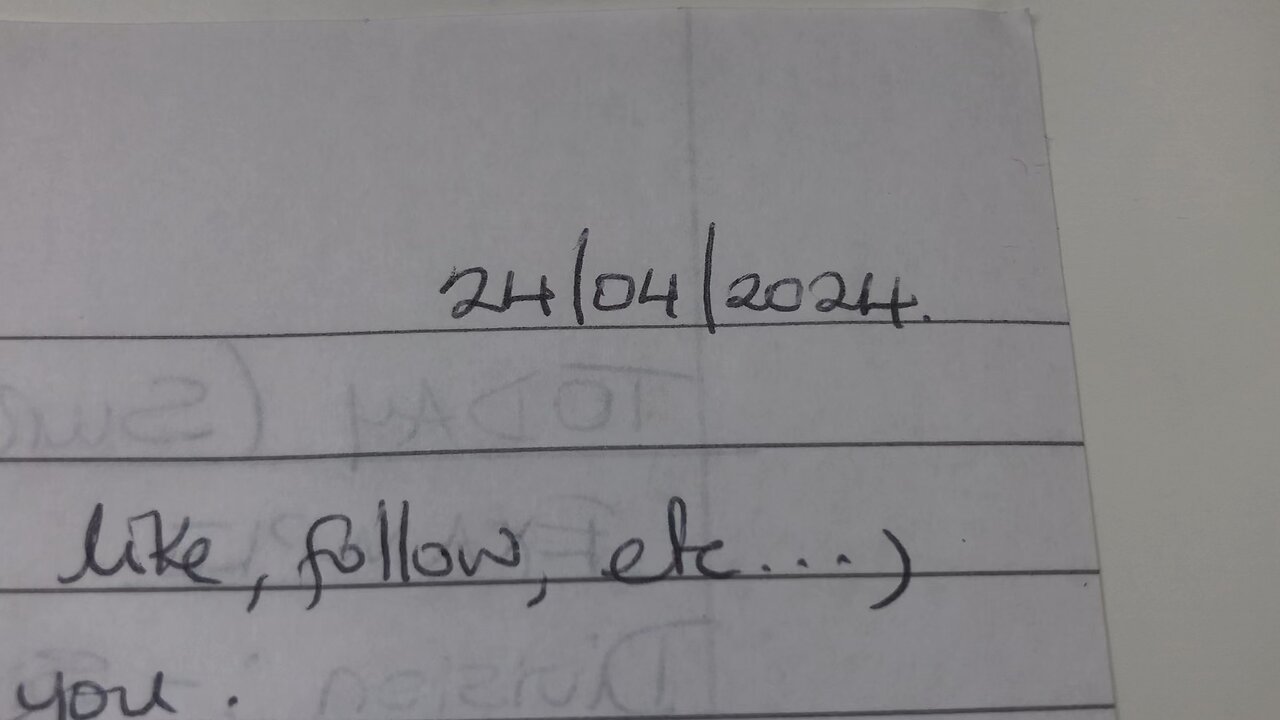 24/04/2024.
like, follow, etc....)
you.